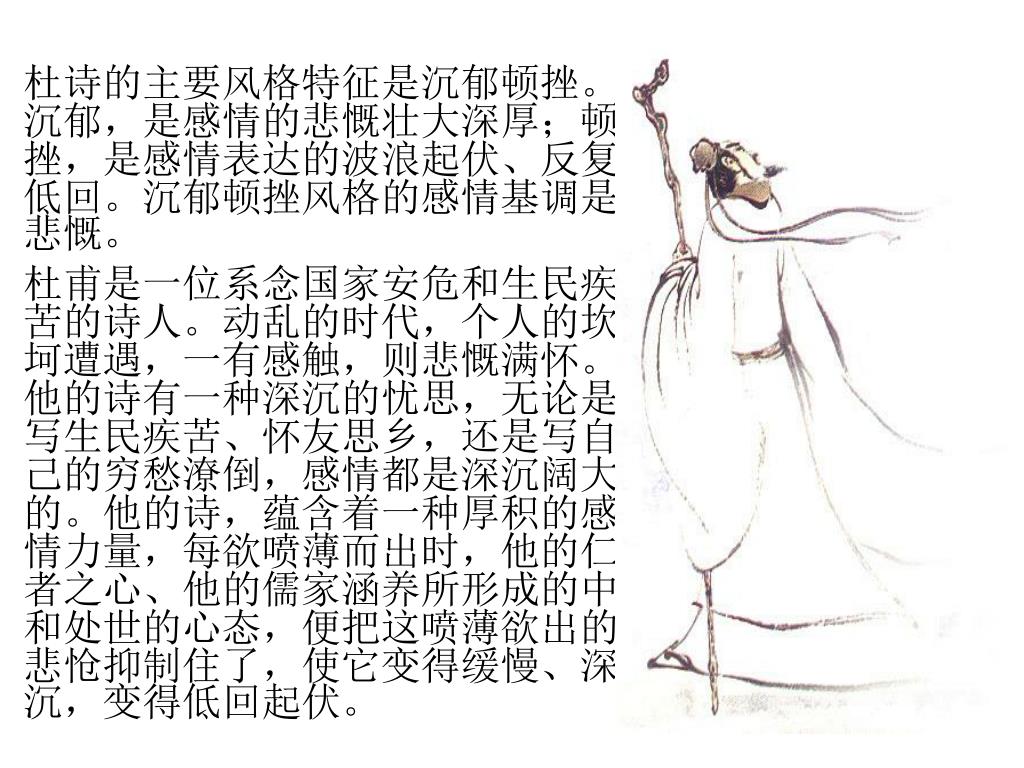 杜诗的主要风格特征是沉郁顿挫。
沉郁，是感情的悲慨壮大深厚；顿
挫，是感情表达的波浪起伏、反复
低回。沉郁顿挫风格的感情基调是
悲慨。
杜甫是一位系念国家安危和生民疾
苦的诗人。动乱的时代，个人的坎
坷遭遇，一有感触，则悲慨满怀。
他的诗有一种深沉的忧思，无论是
写生民疾苦、怀友思乡，还是写自
己的穷愁潦倒，感情都是深沉阔大
的。他的诗，蕴含着一种厚积的感
情力量，每欲喷薄而出时，他的仁
者之心、他的儒家涵养所形成的中
和处世的心态，便把这喷薄欲出的
悲怆抑制住了，使它变得缓慢、深
沉，变得低回起伏。